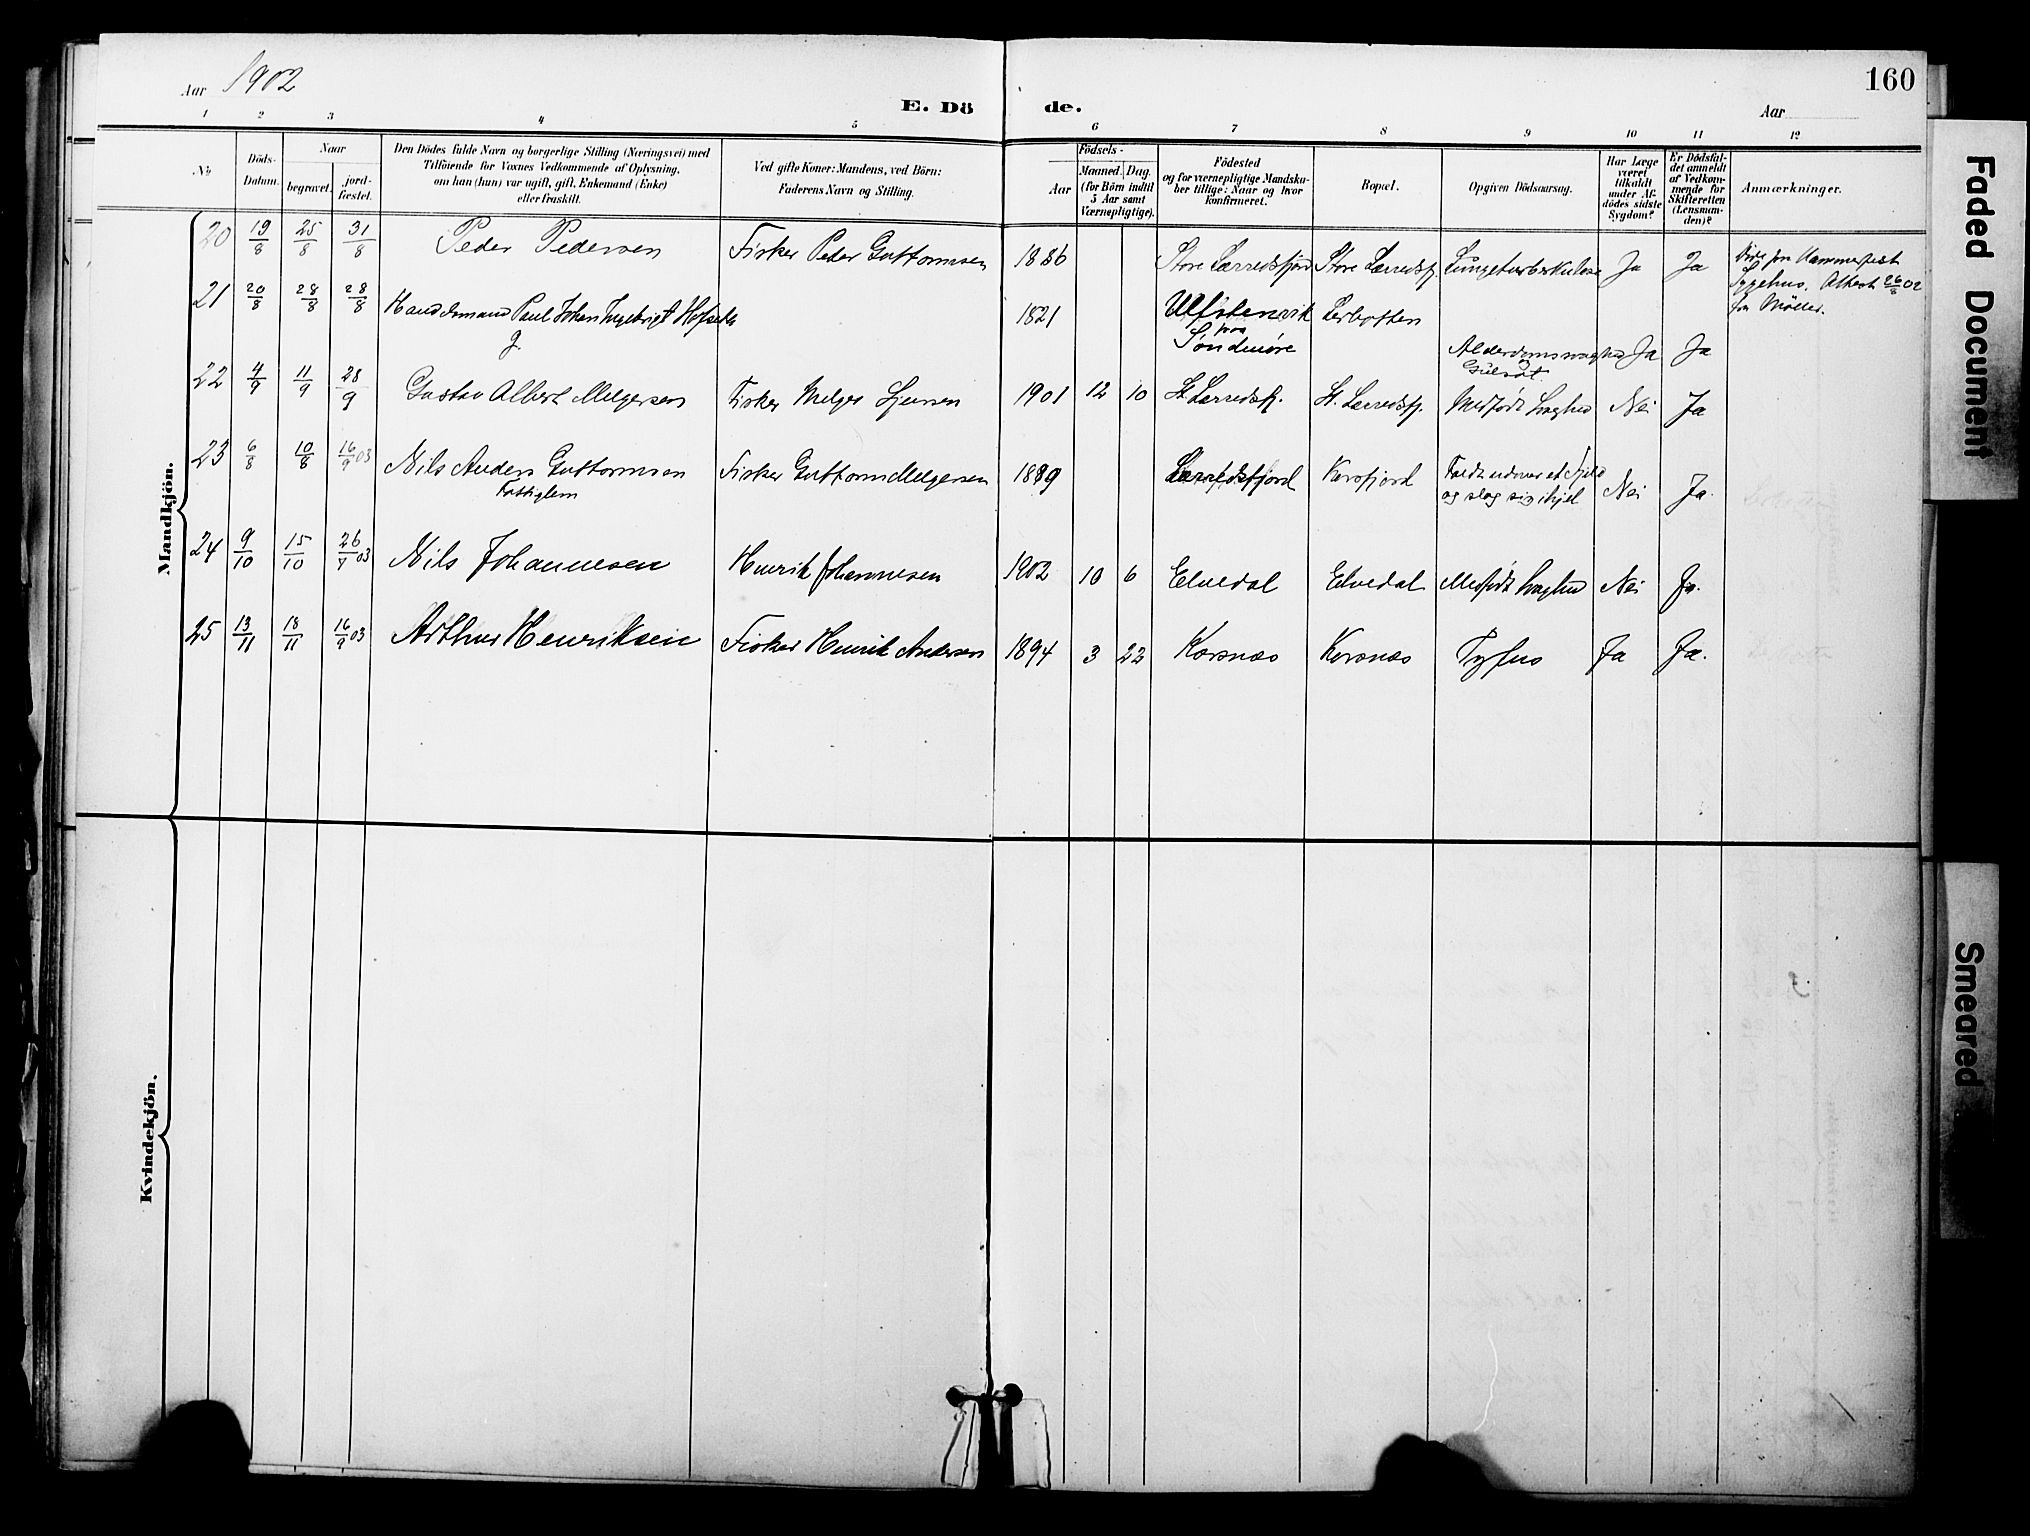 Aar 1902
E. Dö de.
160
Aar
1 2 3 4 5 6 7 8 9 10 11 12
No
Döds-Datum.
Naar
begravet.
jord-fæstet.
Den Dödes fulde Navn og borgerlige Stilling (Næringsvei) med
Tilföiende for Voxnes Vedkommende af Oplysning,
om han (hun) var ugift, gift, Enkemand (Enke)
eller fraskilt.
Ved gifte Koner: Mandens, ved Börn:
Faderens Navn og Stilling.
Födsels-
Aar
Maaned. Dag.
(for Börn indtil
5 Aar samt
Værnepligtige).
Födested
og for værnepligtige Mandsku-
ber tillige: Naar og hvor
konfirmeret.
Bopæl.
Opgiven Dödsaarsag.
Har Læge
været
tilkaldt
under Af-
dödes sidste
Sygdom?
Er Dödsfal-
det anmeldt
af Vedkom-
mende for
Skifteretten
(Lensman-
den)?
Anmærkninger.
Mandkjön.
20 19/8 25/8 31/8 Peder Pedersen Fisker Peder Guttormsen 1886 Store Lærredsfjord Store Lærredsfj. Lungetuberkulose Ja Ja
fra Hammerfest
Sygehus. Attest 26/8 02
fra Möller.
21 20/8 28/8 28/8 Handelsmand Paul Johan Ingebrigt Hofseth 1821 Ulfstenvik Lerbotten
g.
paa
Söndmöre Alderdomssvaghed Ja Ja
Gulsot
22 4/9 11/9 28/9 Gustav Albert Melgersen Fisker Melger 1901 12 10 St. Lærredsfj. St. Lærredsfj. Medfödt Svaghed Nei Ja
23 6/8 10/8 16/9 03 Nils Anders Guttormsen Fisker Guttorm Melgersen 1889 Lærredsfjord Korsfjord Faldt udover et Fjeld
Fattiglem og slog sig ihjel Nei Ja.
24 9/10 15/10 26/7 03 Nils Johannesen Henrik Johannesen 1902 10 6 Elvedal Elvedal Medfödt Svaghed Nei Ja.
25 13/11 18/11 16/9 03 Arthur Henriksen Fisker Henrik Andersen 1894 3 22 Korsnæs Korsnæs Tyfus Ja Ja.
Kvindekjön.
Faded Document
Smeared